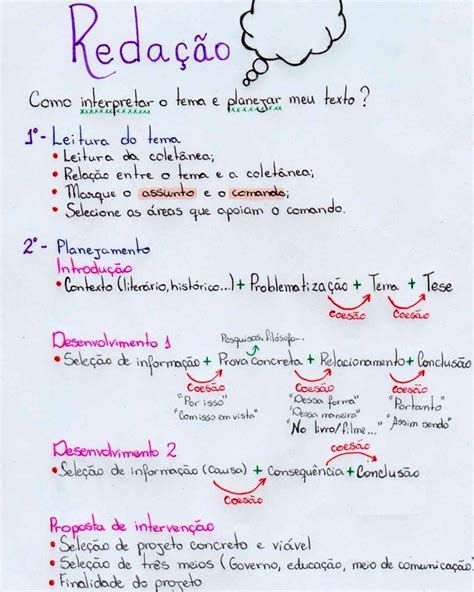 Redação
Como interpretar o tema e planejar meu texto?
1º - Leitura do tema
• Leitura da coletânea;
• Relação entre o tema e a coletânea;
• Marque o assunto e o comando;
• Selecione as áreas que apoiam o comando.
2º - Planejamento
Introdução
• Contexto (literário, histórico...) + Problematização + Tema + Tese
coesão coesão
Desenvolvimento 1
Pesquisas, filósofo...
• Seleção de informação + Prova Concreta + Relacionamento + Conclusão
coesão coesão coesão
"Por isso" "Dessa forma" "Portanto"
"Com isso em vista" "Dessa maneira" "Assim sendo"
"No livro/filme..."
Desenvolvimento 2
coesão
• Seleção de informação (causa) + Consequência + Conclusão
coesão
Proposta de intervenção
• Seleção de projeto concreto e viável
• Seleção de três meios (Governo, educação, meio de comunicação)
• Finalidade do projeto